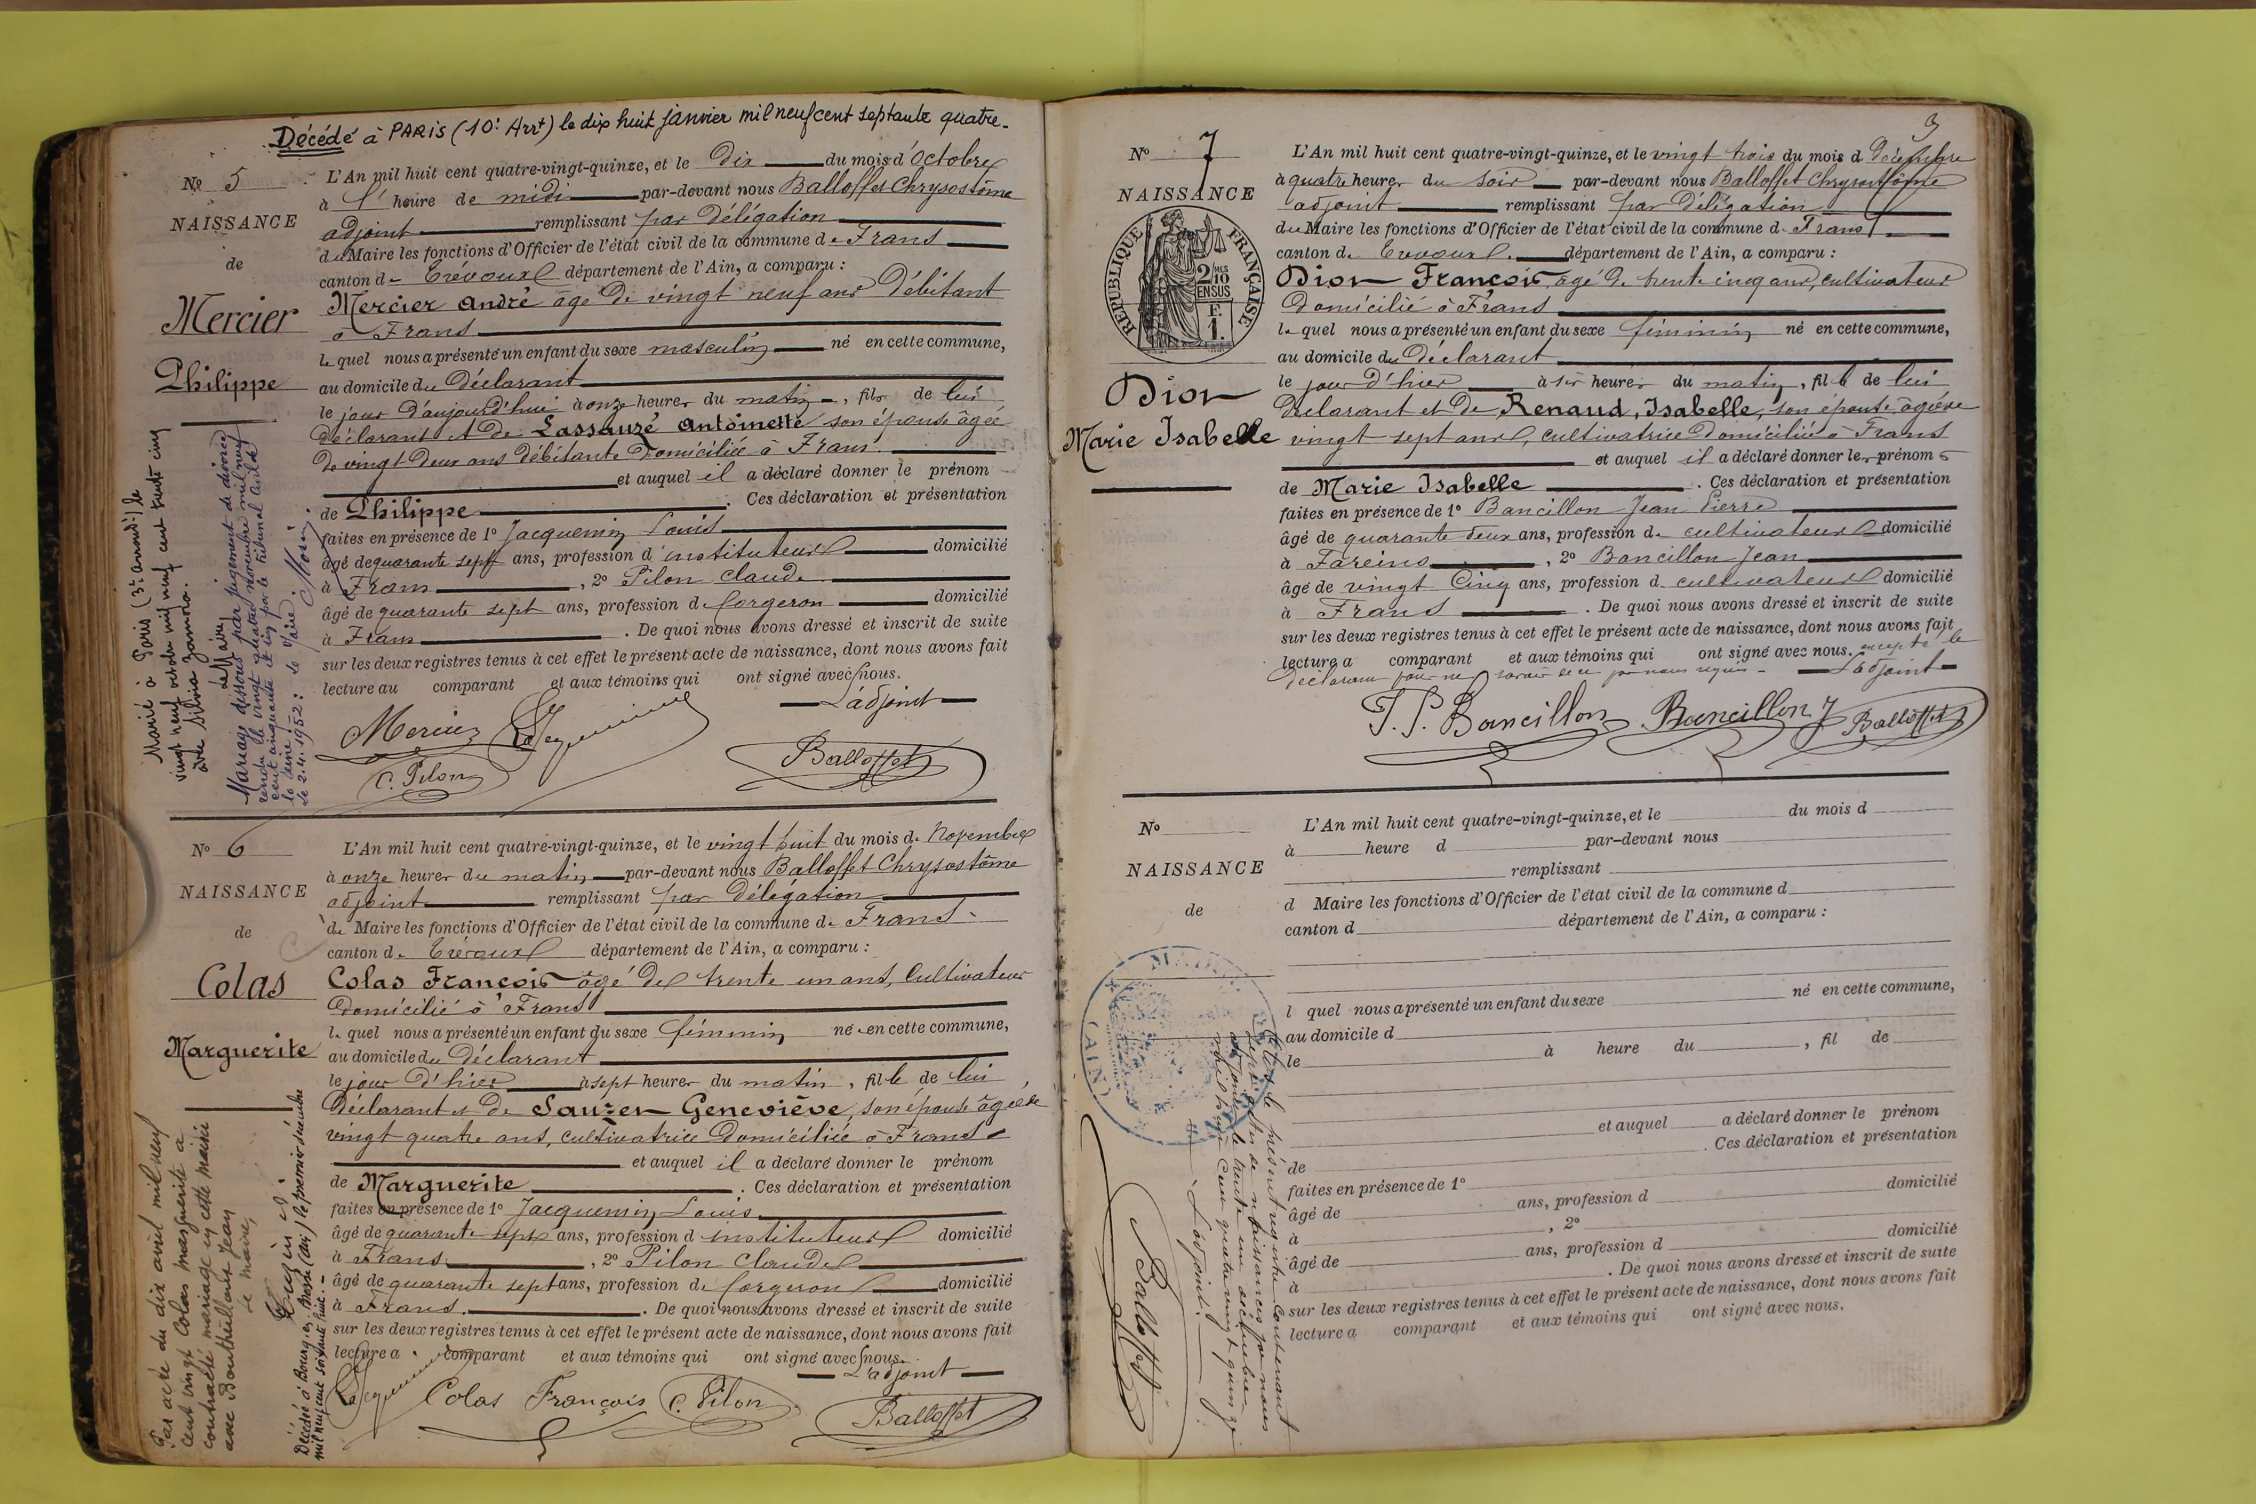 Décédé à PARIS (10e Arrt) le dix huit janvier mil neuf cent septante quatre.
No 5
NAISSANCE
de
Mercier
Philippe
L'An mil huit cent quatre-vingt-quinze, et le Dix du mois d'Octobre
à l'heure de midi par-devant nous Balloffet Chrysostôme
adjoint remplissant par Délégation
du Maire les fonctions d'Officier de l'état civil de la commune de Frans
canton de Trévoux département de l'Ain, a comparu :
Mercier André âgé de vingt neuf ans Débitant
à Frans
lequel nous a présenté un enfant du sexe masculin né en cette commune,
au domicile du Déclarant
le jour d'aujourd'hui à onze heures du matin, fils de lui
déclarant et de Lassauzé Antoinette son épouse âgée
de vingt deux ans débitante domiciliée à Frans.
et auquel il a déclaré donner le prénom
de Philippe. Ces déclaration et présentation
faites en présence de 1o Jacquemin Louis
âgé de quarante sept ans, profession d'instituteur domicilié
à Frans, 2o Pilon Claude
âgé de quarante sept ans, profession de forgeron domicilié
à Frans. De quoi nous avons dressé et inscrit de suite
sur les deux registres tenus à cet effet le présent acte de naissance, dont nous avons fait
lecture au comparant et aux témoins qui ont signé avec nous.
L'adjoint
Mercier
C. Pilon
Balloffet
Marié à Paris (3e arrondt) le
vingt neuf mil neuf cent trente cinq
avec Silvia
le Maire,
Mariage dissous par jugement de divorce
rendu le vingt quatre novembre mil neuf
cent cinquante et un par le Tribunal civil de
la Seine.
le 2.4.1952 : le Maire.
No 6
NAISSANCE
de
Colas
Marguerite
L'An mil huit cent quatre-vingt-quinze, et le vingt huit du mois de Novembre
à onze heures du matin par-devant nous Balloffet Chrysostôme
adjoint remplissant par Délégation
de Maire les fonctions d'Officier de l'état civil de la commune de Frans
canton de Trévoux département de l'Ain, a comparu :
Colas François âgé de trente un ans, Cultivateur
domicilié à Frans
lequel nous a présenté un enfant du sexe féminin né en cette commune,
au domicile du déclarant
le jour d'hier à sept heures du matin, fille de lui
Déclarant et de Sauzer Geneviève, son épouse âgée de
vingt quatre ans, cultivatrice domiciliée à Frans
et auquel il a déclaré donner le prénom
de Marguerite. Ces déclaration et présentation
faites en présence de 1o Jacquemin Louis
âgé de quarante sept ans, profession d'instituteur domicilié
à Frans, 2o Pilon Claude
âgé de quarante sept ans, profession de forgeron domicilié
à Frans. De quoi nous avons dressé et inscrit de suite
sur les deux registres tenus à cet effet le présent acte de naissance, dont nous avons fait
lecture a comparant et aux témoins qui ont signé avec nous.
L'adjoint
Colas François
C. Pilon
Balloffet
Par acte du dix avril mil neuf
cent vingt Colas Marguerite a
contracté mariage en cette mairie
avec Jean
le maire,
Décédée à Bourg en Bresse (Ain) le premier décembre
mil neuf cent soixante huit.
3
No 7
NAISSANCE
RÉPUBLIQUE FRANÇAISE
2/10
EN SUS
F.
1.
Dion
Marie Isabelle
L'An mil huit cent quatre-vingt-quinze, et le vingt trois du mois d Décembre
à quatre heures du soir par-devant nous Balloffet Chrysostôme
adjoint remplissant par Délégation
du Maire les fonctions d'Officier de l'état civil de la commune d Frans
canton de Trévoux département de l'Ain, a comparu :
Dion François, âgé de trente cinq ans, cultivateur
domicilié à Frans
lequel nous a présenté un enfant du sexe féminin né en cette commune,
au domicile du déclarant
le jour d'hier à six heures du matin, fille de lui
déclarant et de Renaud, Isabelle, son épouse âgée de
vingt sept ans, cultivatrice domiciliée à Frans
et auquel il a déclaré donner les prénoms
de Marie Isabelle. Ces déclaration et présentation
faites en présence de 1o Bancillon Jean Pierre
âgé de quarante deux ans, profession de cultivateur domicilié
à Fareins, 2o Bancillon Jean
âgé de vingt cinq ans, profession d cultivateur domicilié
à Frans. De quoi nous avons dressé et inscrit de suite
sur les deux registres tenus à cet effet le présent acte de naissance, dont nous avons fait
lecture a comparant et aux témoins qui ont signé avec nous. excepté le
déclarant pour ne savoir de ce par nous requis. L'adjoint
J. P. Bancillon
Bancillon J
Balloffet
No
NAISSANCE
de
L'An mil huit cent quatre-vingt-quinze, et le du mois d
à heure d par-devant nous
remplissant
d Maire les fonctions d'Officier de l'état civil de la commune d
canton d département de l'Ain, a comparu :
l quel nous a présenté un enfant du sexe né en cette commune,
au domicile d
le à heure du, fil de
et auquel a déclaré donner le prénom
de. Ces déclaration et présentation
faites en présence de 1o
âgé de ans, profession d domicilié
à, 2o
âgé de ans, profession d domicilié
à. De quoi nous avons dressé et inscrit de suite
sur les deux registres tenus à cet effet le présent acte de naissance, dont nous avons fait
lecture a comparant et aux témoins qui ont signé avec nous.
(AIN)
le présent registre contenant
sept actes de naissances par nous
adjoint le trente un décembre
mil huit cent quatre vingt quinze
L'adjoint.
Balloffet